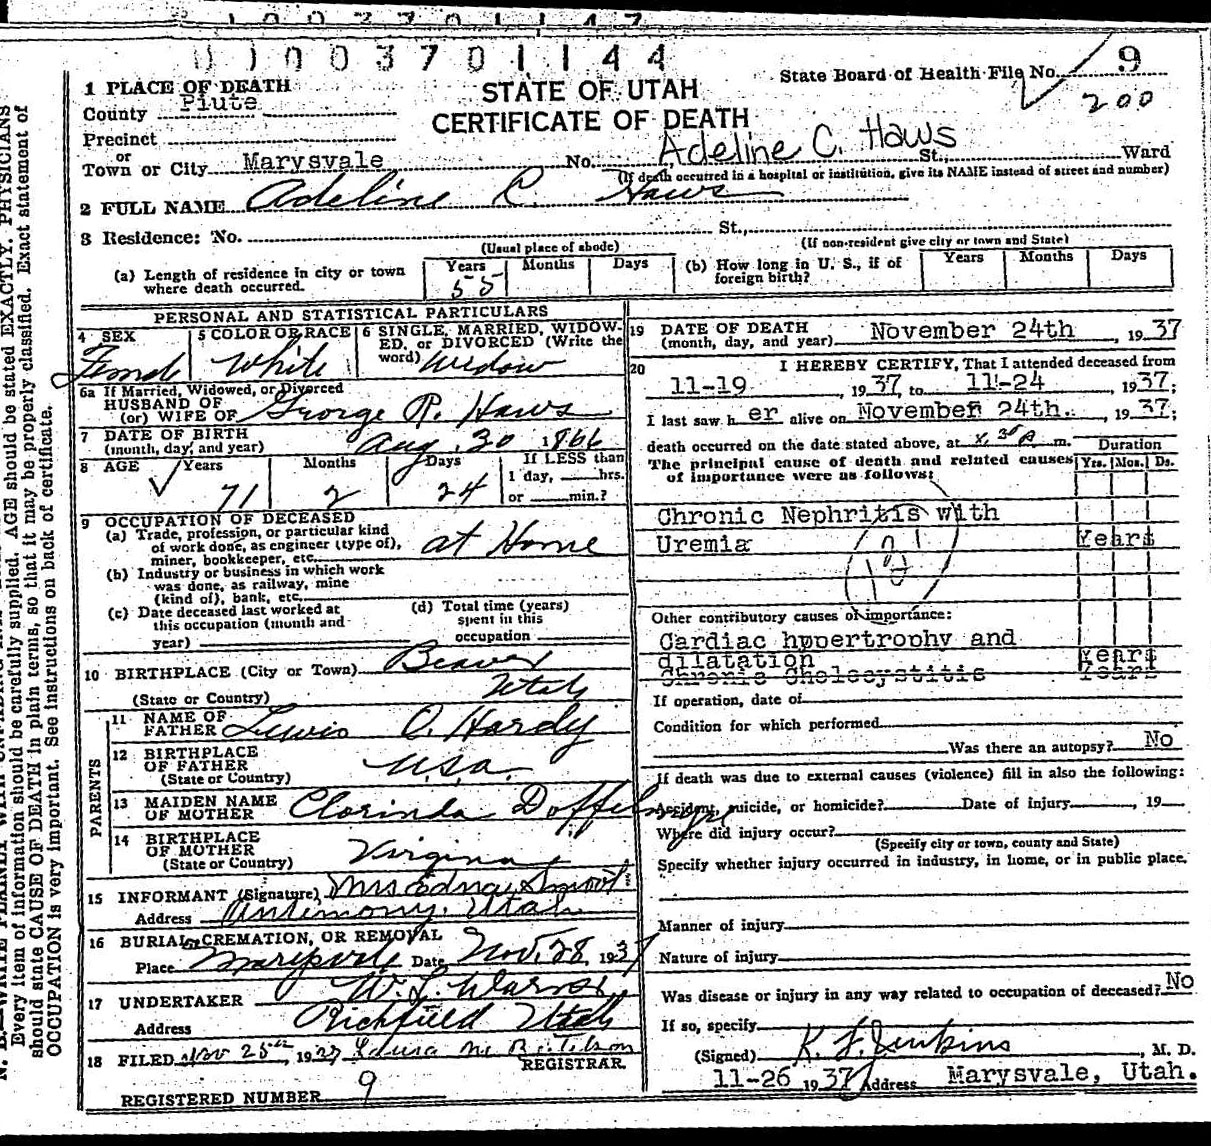 0 1 0 0 3 7 0 1 1 4 4
State Board of Health File No. 9
200
STATE OF UTAH
CERTIFICATE OF DEATH
1 PLACE OF DEATH
County Piute
Precinct
or
Town or City Marysvale No. St., Ward
Adeline C. Haws
(If death occurred in a hospital or institution, give its NAME instead of street and number)
2 FULL NAME Adeline C. Haws
3 Residence: No. St.,
(Usual place of abode) (If non-resident give city or town and State)
(a) Length of residence in city or town where death occurred. Years 55 Months Days
(b) How long in U. S., if of foreign birth? Years Months Days
PERSONAL AND STATISTICAL PARTICULARS
4 SEX Female
5 COLOR OR RACE White
6 SINGLE, MARRIED, WIDOWED, or DIVORCED (Write the word) Widow
6a If Married, Widowed, or Divorced
HUSBAND OF
(or) WIFE OF George R. Haws
7 DATE OF BIRTH
(month, day, and year) Aug. 30 1866
8 AGE Years 71 Months 2 Days 24
If LESS than
1 day, hrs.
or min.?
9 OCCUPATION OF DECEASED
(a) Trade, profession, or particular kind
of work done, as engineer (type of),
miner, bookkeeper, etc. at Home
(b) Industry or business in which work
was done, as railway, mine
(kind of), bank, etc.
(c) Date deceased last worked at
this occupation (month and
year)
(d) Total time (years)
spent in this
occupation
10 BIRTHPLACE (City or Town) Beaver
(State or Country) Utah
PARENTS
11 NAME OF
FATHER Lewis O. Hardy
12 BIRTHPLACE
OF FATHER U.S.A.
(State or Country)
13 MAIDEN NAME
OF MOTHER Clorinda
14 BIRTHPLACE
OF MOTHER Virginia
(State or Country)
15 INFORMANT (Signature) Mrs Edna Smoot
Address Antimony, Utah
16 BURIAL, CREMATION, OR REMOVAL
Place Marysvale Date Nov. 28, 1937
17 UNDERTAKER W. L.
Address Richfield Utah
18 FILED Nov 25th, 1937
REGISTRAR.
REGISTERED NUMBER 9
19 DATE OF DEATH
(month, day, and year) November 24th, 1937
20 I HEREBY CERTIFY, That I attended deceased from
11-19, 1937, to 11-24, 1937;
I last saw h er alive on November 24th., 1937;
death occurred on the date stated above, at m.
Duration
The principal cause of death and related causes Yrs. Mos. Ds.
of importance were as follows:
Chronic Nephritis with
Uremia Years
Other contributory causes of importance:
Cardiac hypertrophy and
dilatation Years
Chronic Cholecystitis Years
If operation, date of
Condition for which performed
Was there an autopsy? No
If death was due to external causes (violence) fill in also the following:
Accident, suicide, or homicide? Date of injury, 19
Where did injury occur?
(Specify city or town, county and State)
Specify whether injury occurred in industry, in home, or in public place.
Manner of injury
Nature of injury
Was disease or injury in any way related to occupation of deceased? No
If so, specify
(Signed) K. F. Jenkins, M. D.
11-26 1937 Address Marysvale, Utah.
Every item of information should be carefully supplied. AGE should be stated EXACTLY. PHYSICIANS
should state CAUSE OF DEATH in plain terms, so that it may be properly classified. Exact statement of
OCCUPATION is very important. See instructions on back of certificate.